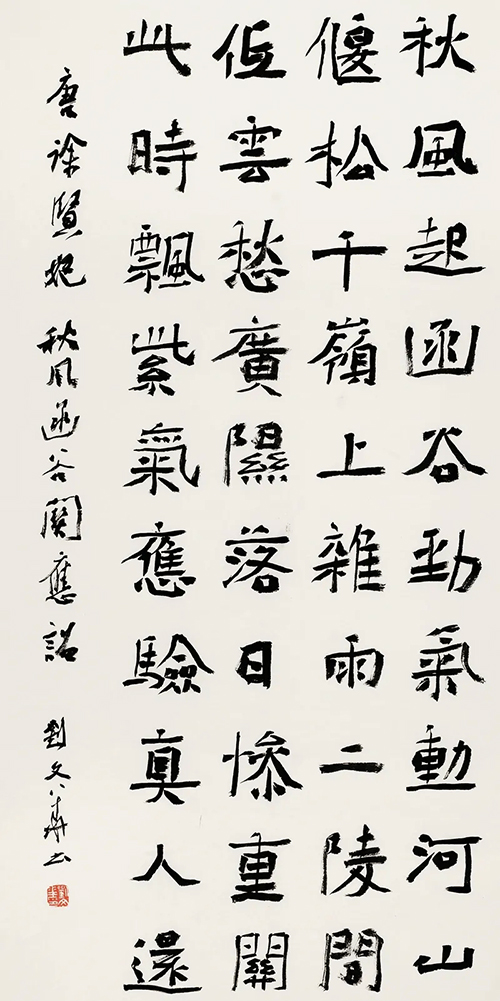 秋風起函谷勁氣動河山
偃松千嶺上雜雨二陵間
低雲愁廣隰落日慘重關
此時飄紫氣應驗真人還
唐徐賢妃 秋風函谷關應詔 劉文華書